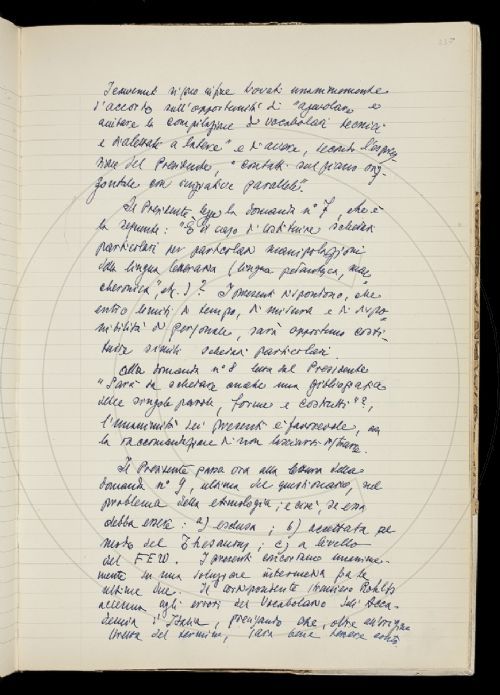 237
d'accordo sull'opportunità di "agevolare e
aiutare la compilazione di vocabolari tecnici
e dialettali a latere" e di avere, secondo l'espres-
sione del Presidente, "contatti sul piano oriz-
zontale con iniziative parallele".
Il Presidente legge la domanda n° 7, che è
la seguente: "È il caso d'istituire schedari
particolari per particolari manipolazioni
della lingua letteraria (lingua pedantesca, mac-
cheronica", etc.)? I presenti rispondono, che
entro limiti di tempo, di misura e di dispo-
nibilità di personale, sarà opportuno costi-
tuire simili schedari particolari.
Alla domanda n° 8 letta dal Presidente
"Sarà da schedare anche una bibliografia
delle singole parole, forme e costrutti"?,
l'unanimità dei presenti è favorevole, con
la raccomandazione di non lasciarsi
Il Presidente passa ora alla lettura della
domanda n° 9, ultima del questionario, sul
problema della etimologia; e cioè, se essa
debba essere: a) esclusa; b) accettata
modo del Thesaurus; c) a livello
del FEW. I presenti concordano unanime-
mente su una soluzione intermedia fra le
ultime due. Il corrispondente Rohlfs
accenna agli errori del Vocabolario dell'Acca-
demia d'Italia, che, oltre all'origine
del termine, sarà bene tenere conto